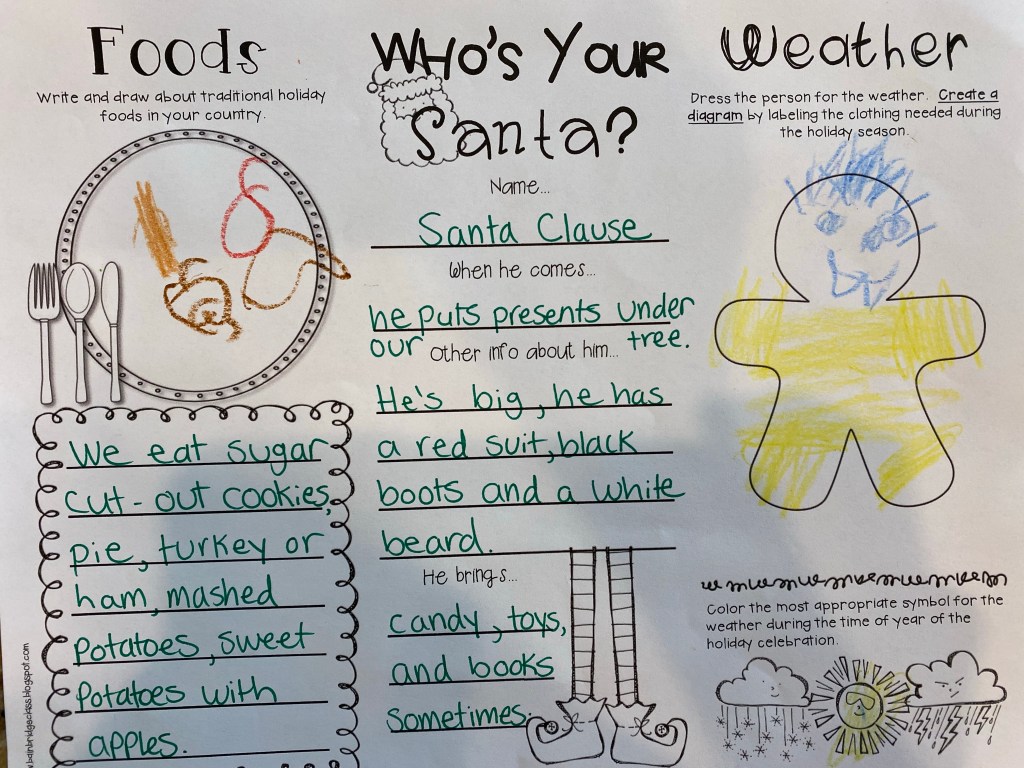 Foods
Write and draw about traditional holiday
foods in your country.
We eat sugar
cut-out cookies,
pie, turkey or
ham, mashed
potatoes, sweet
potatoes with
apples.
WHO'S YOUR
Santa?
Name...
Santa Clause
When he comes...
he puts presents under
our tree.
Other info about him...
He's big, he has
a red suit, black
boots and a white
beard.
He brings...
candy, toys,
and books
sometimes.
Weather
Dress the person for the weather. Create a
diagram by labeling the clothing needed during
the holiday season.
Color the most appropriate symbol for the
weather during the time of year of the
holiday celebration.